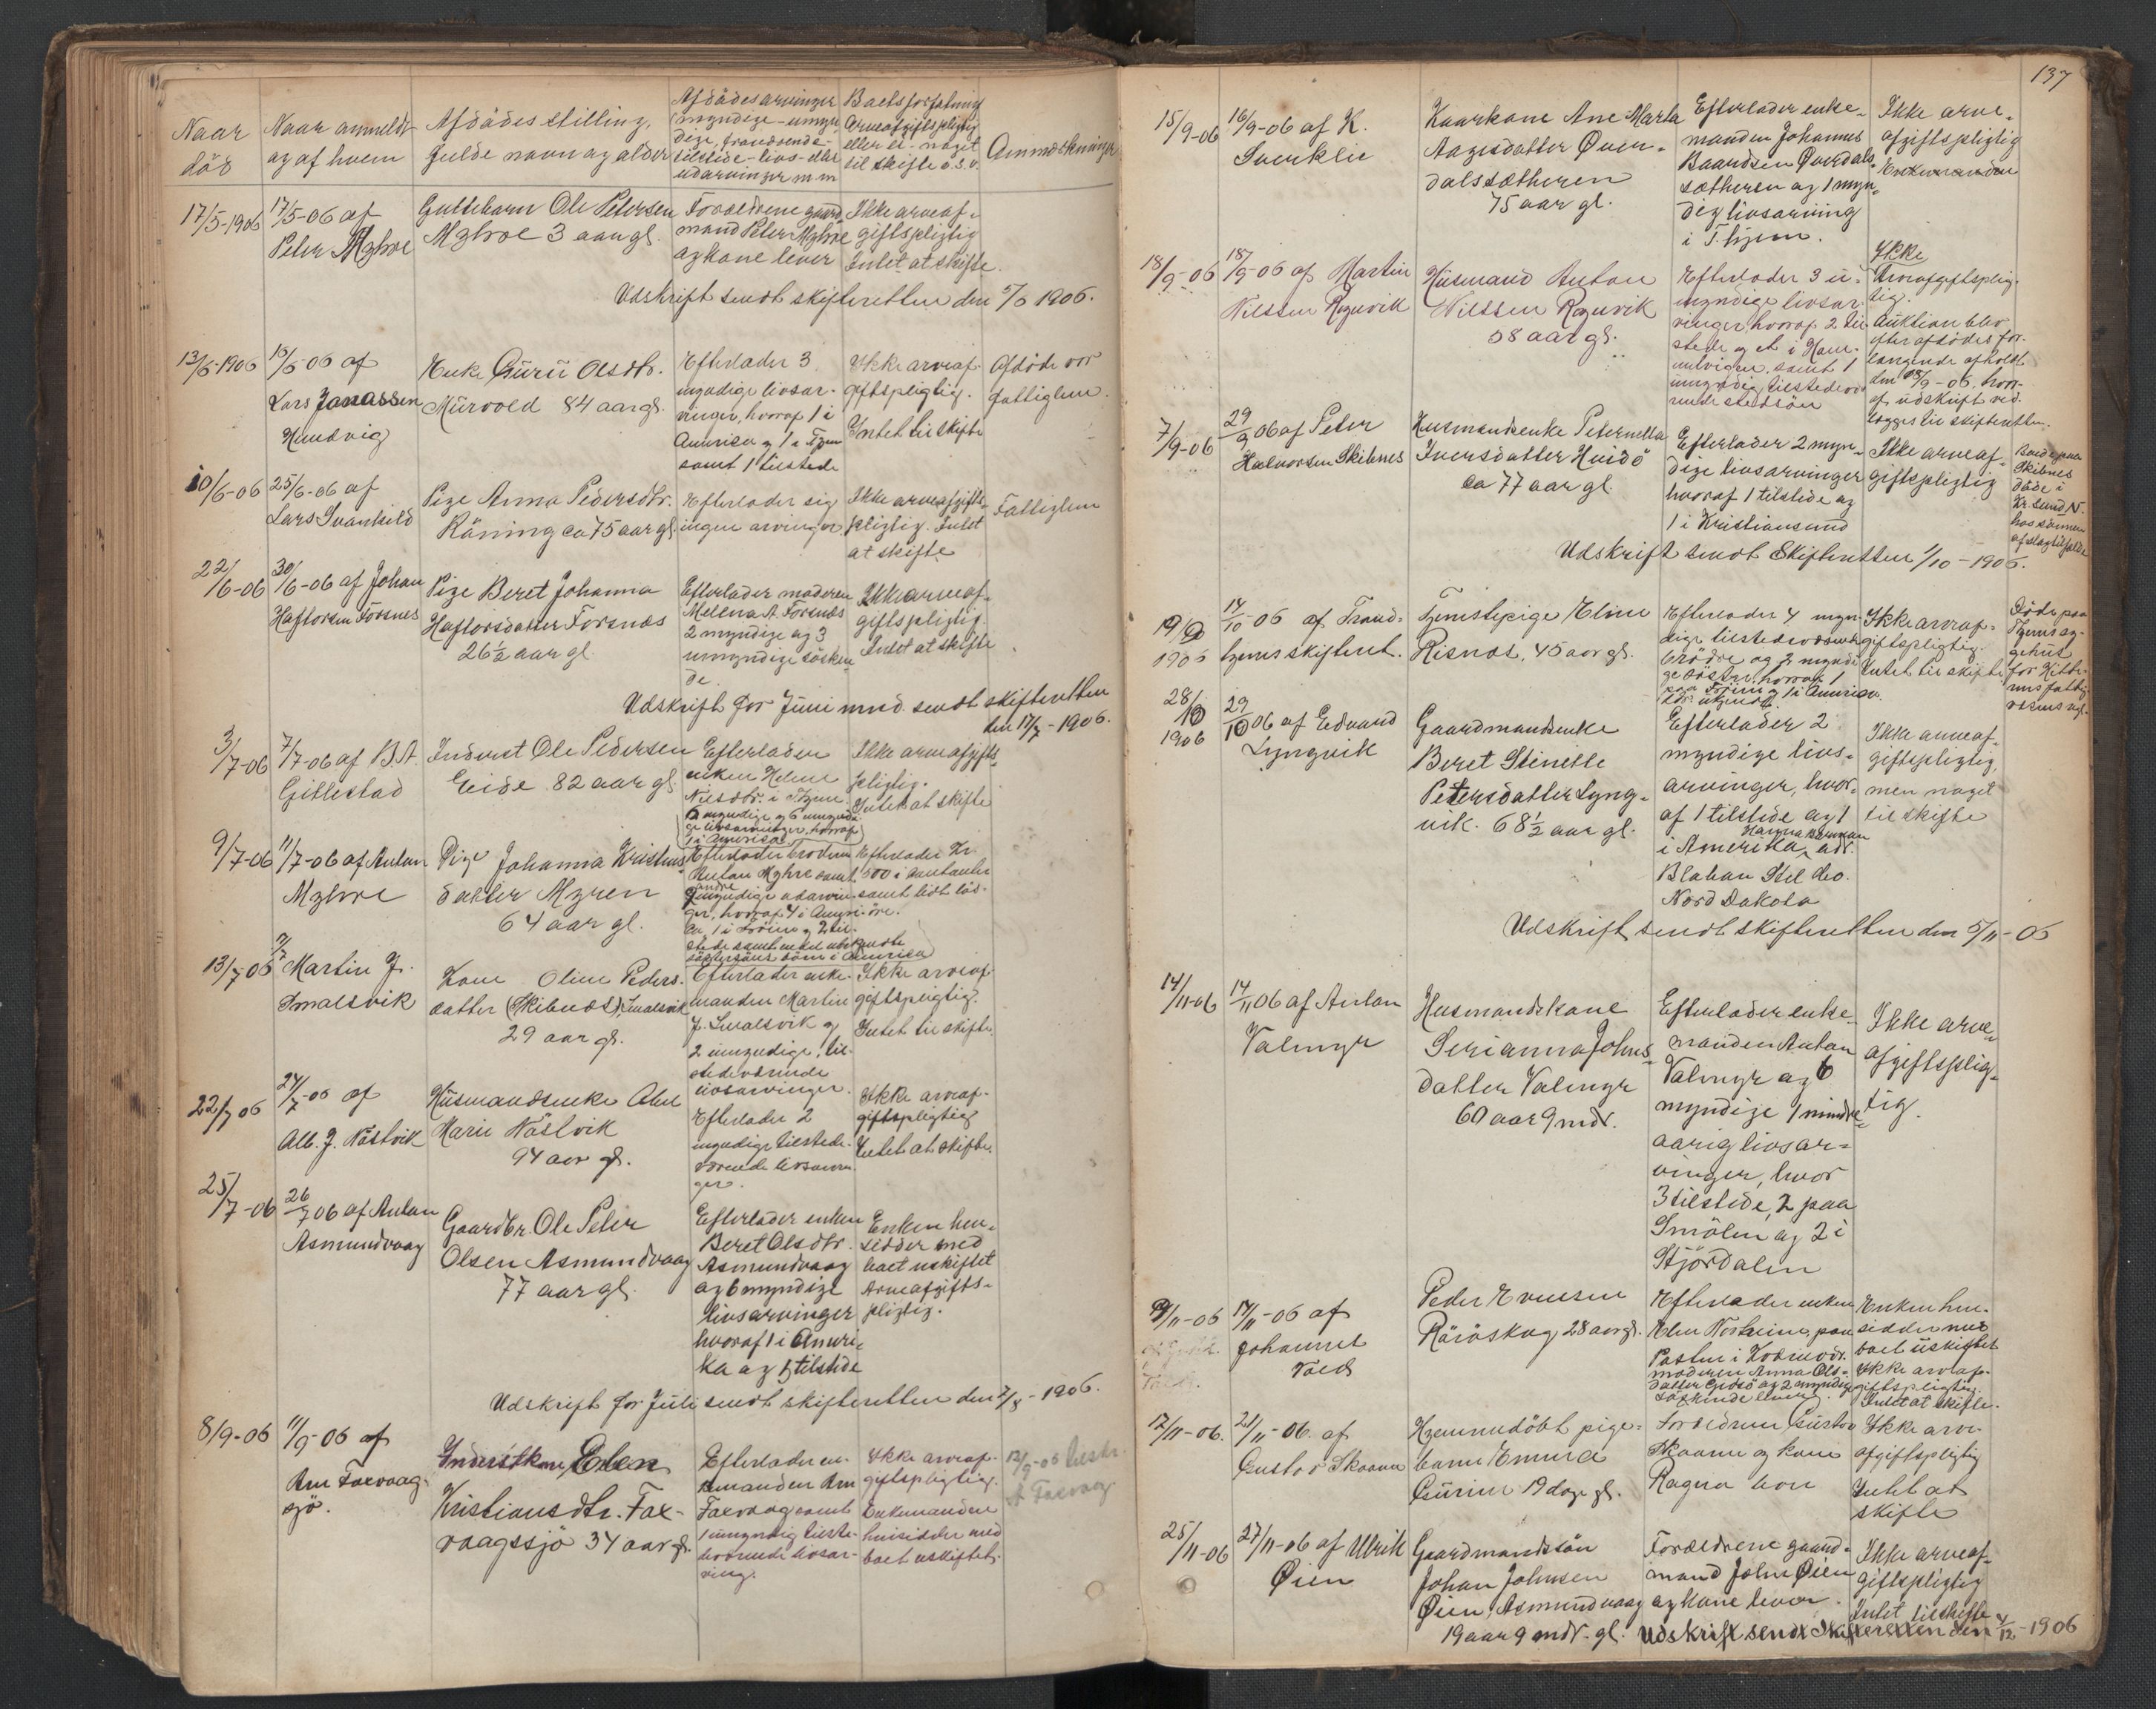 Naar
död
Naar anmeldt
og af hvem
Afdödes stilling,
fulde navn og alder
Afdödes arvinger
myndige - umyn
dige, fraværende -
tilstede - livs - eller
udarvinger m.m
Boets forfatning
Arveafgiftspligtig
eller ei - noget
til skifte o.s.v.
Anmærkninger
17/5-1906
17/5-06 af
Peter Myhre
Guttebarn Ole Petersen
Myhre 3 aar gl.
Forældrene gaard
mand Peter Myhre
og kone lever
Ikke arveaf-
giftspligtig
Intet at skifte.
Udskrift sendt skifteretten den 5/6 1906.
13/6-1906
15/6-06 af
Lars Jonassen
Hundvig
Enke Guru Olsdtr.
Murvold 84 aar gl.
Efterlader 3
myndige livsar-
vinger, hvoraf 1 i
Amerika og 1 i Tjem
samt 1 tilstede
Ikke arveaf-
giftspligtig.
Intet til skifte
Afdöde var
fattiglem.
20/6-06
25/6-06 af
Lars Svanhild
Pige Anna Pedersdtr.
Räning ca 75 aar gl.
Efterlader sig
ingen arvinger
Ikke arveafgifts-
pligtig. Intet
at skifte
Fattiglem
22/6-06
30/6-06 af Johan
Haftorsen Forsnes
Pige Beret Johanna
Haftorsdatter Forsnæs
26½ aar gl.
Efterlader moderen
Melena A. Forsnæs
2 myndige og 3
umyndige sösken
de
Ikke arveaf-
giftspligtig.
Intet at skifte
Udskrift for Juni mnd. sendt skifteretten
den 17/7-1906.
3/7-06
7/7-06 af B.A.
Gillestad
Inderst Ole Pedersen
Eide 82 aar gl.
Efterlader
enken Helene
Nilsdtr. i Tjem
6 myndige livsarvinger, hvoraf
1 i Amerika
Ikke arveafgifts-
pligtig.
Intet at skifte
9/7-06
11/7-06 af Anton
Myhre
Pige Johanna Kristens
datter Myren
64 aar gl.
Efterlader broderen
Anton Myhre samt
andre
myndige udarvin-
ger, hvoraf 4 i Ameri-
ka, 1 i Fröien og 2 til-
stede samt
söstersöns börn i Amerika
Efterlader kr.
500 i kontanter
samt lidt lös-
öre.
13/7-06
Martin J.
Smalsvik
Kone Oline Peders-
datter (Skibnæs) Smalsvik
29 aar gl.
Efterlader enke-
manden Martin
J. Smalsvik og
2 umyndige, til-
stedeværende
livsarvinger.
Ikke arveaf-
giftspligtig.
Intet til skifte.
22/7 06
24/7-06 af
Alb. J. Nästvik
Husmandsenke Abel
Marie Nästvik
94 aar gl.
Efterlader 2
myndige tilstede-
værende livsarvin-
ger.
Ikke arveaf-
giftspligtig
Intet at skifte.
25/7-06
26/7 06 af Anton
Asmundvaag
Gaardbr. Ole Peter
Olsen Asmundvaag
77 aar gl.
Efterlader enken
Beret Olsdtr.
Asmundvaag
og 6 myndige
livsarvinger
hvoraf 1 i Ameri-
ka og 5 tilstede
Enken hen-
sidder med
boet uskiftet
Arveafgifts-
pligtig.
Udskrift for Juli sendt skifteretten den 2/8-1906.
8/9-06
11/9-06 af
Arn Faxvaag-
sjö.
Inderstkone Elen
Kristiansdtr. Fax-
vaagssjö 34 aar gl.
Efterlader en-
kemanden Arn
Faxvaag samt
1 umyndig tilste-
deværende livsar-
ving.
Ikke arveaf-
giftspligtig.
Enkemanden
hensidder med
boet uskiftet.
12/9-06
A. Faxvaag
137
15/9-06
16/9-06 af K.
Sverklie
Kaarkone Ane Marta
Aagesdatter Över-
dalssætheren
75 aar gl.
Efterlader enke-
manden Johannes
Baardsen Överdals-
sætheren og 1 myn-
dig livsarving
i Thjem.
Ikke arve-
afgiftspligtig
Enkemanden
18/9-06
18/9-06 af Martin
Nilssen Røgnvik
Husmand Anton
Nilssen Røgnvik
58 aar gl.
Efterlader 3 u-
myndige livsar-
vinger, hvoraf 2 til-
stede og et i Hem-
samt 1
umyndig tilstedevæ-
rende stedsön
Ikke
Arveafgiftsplig-
tig.
Auktion blev
efter afdödes for-
langende afholdt
den 28/9-06, hvor-
af udskrift ved-
lægges til skifteretten.
7/9-06
29/9 06 af Peter
Halvorsen Skibnes
Husmandsenke Peternella
Iversdatter Hvidö
ca 77 aar gl.
Efterlader 2 myn-
dige livsarvinger
hvoraf 1 tilstede og
1 i Kristiansund
Ikke arveaf-
giftspligtig
Boede paa
Skibnes
döde i
Kr.sund N.
hos sönnen
af slagtilfælde
Udskrift sendt Skifteretten 1/10-1906.
19/9
1906
14/10-06 af Trond-
hjems skifteret.
Tjenestepige Eline
Risnæs, 45 aar gl.
Efterlader 4 myn-
dige tilstedeværende
brödre og 2 myndi-
ge söstre, hvoraf 1
paa Fröien og 1 i Amerika.
Ikke arveaf-
giftspligtig.
Intet til skifte
Döde paa
Tjems sy-
gehus
for Hitte-
rens fattig-
væsens regn.
28/10
1906
29/10 06 af Edvard
Lyngvik
Gaardmandsenke
Beret Stinelle
Petersdatter Lyng-
vik. 68½ aar gl.
Efterlader 2
myndige livs-
arvinger, hvor-
af 1 tilstede og 1
i Amerika, adr.
Hanna
Blahan Stel Co.
Nord Dakota
Ikke arveaf-
giftspligtig,
men noget
til skifte
Udskrift sendt skifteretten den 5/11-06
14/11-06
14/11 06 af Anton
Valmyr
Husmandskone
Serianna Johns-
datter Valmyr
60 aar 9 mdr.
Efterlader enke-
manden Anton
Valmyr og 6
myndige 1 mindre-
aarig livsar-
vinger, hvor
3 tilstede, 2 paa
Smölen og 2 i
Stjördalen
Ikke arve-
afgiftsplig-
tig.
/11-06
14/11-06 af
Johannes
Vold
Peder Evensen
Räröskog, 28 aar gl.
Efterlader enken
Elen
moderen Anna Ols-
datter og 2 myndige
söskende
Enken hen-
sidder med
boet uskiftet
Ikke arveaf-
giftspligtig.
Intet at skifte.
17/11-06.
21/11-06. af
Gustav Skaanes
Hjemmedöbt pige-
barn Emma
Gurine 19 dage gl.
Forældrene Gustav
Skaanes og kone
Ragna lever
Ikke arve-
afgiftspligtig
Intet at
skifte
25/11-06
27/11-06 af Ulrik
Øien
Gaardmandssön
Johan Johnsen
Øien, Asmundvaag
19 aar 9 mdr. gl.
Forældrene gaard-
mand John Øien
og kone lever.
Ikke arveaf-
giftspligtig
Intet til skifte
Udskrift sendt Skifteretten den 4/12-1906